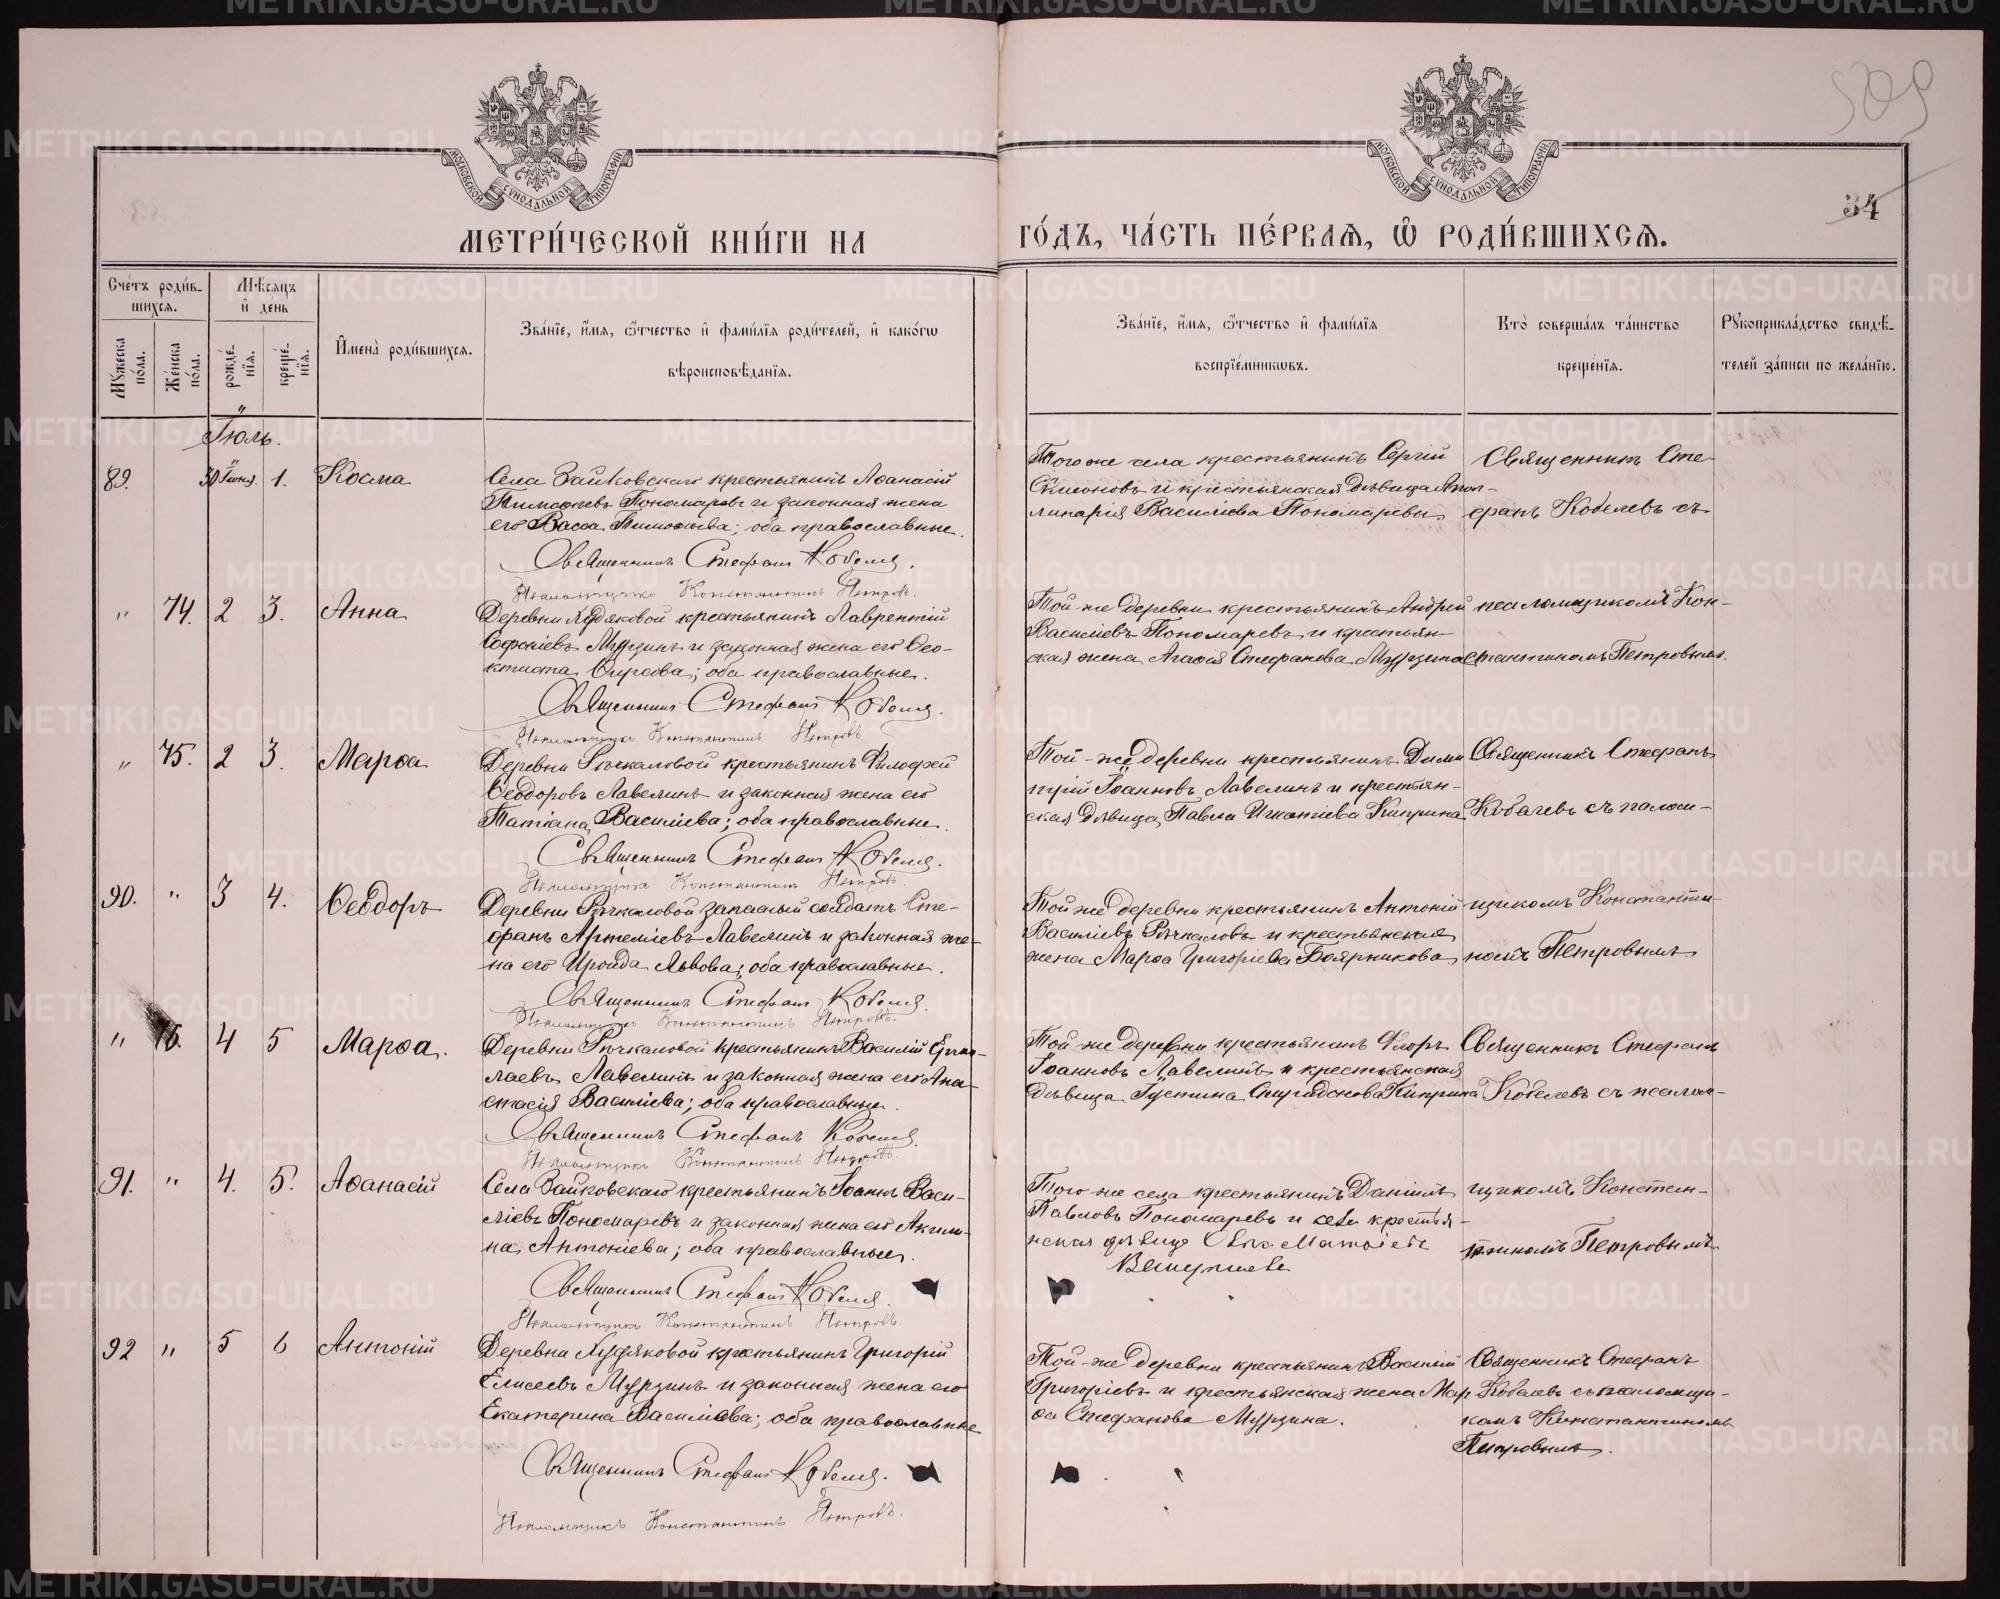 309
МОСКОВСКОЙ СУНОДАЛЬНОЙ ТИПОГРАФІИ
МОСКОВСКОЙ СУНОДАЛЬНОЙ ТИПОГРАФІИ
34
МЕТРИ́ЧЕСКОЙ КНИ́ГИ НА
ГО́ДЪ, ЧА́СТЬ ПЕ́РВАѦ, Ѡ РОДИ́ВШИХСѦ.
Сче́тъ роди́в-
шихсѧ.
Мѣ́сѧцъ
и҆ де́нь
Мꙋ́жеска по́ла.
Же́нска по́ла.
рожде́-
нїѧ.
креще́-
нїѧ.
И҆мена̀ роди́вшихсѧ.
Зва́нїе, и҆́мѧ, ѻ҆́тчество и҆ фами́лїѧ роди́телей, и҆ како́гѡ
вѣроисповѣ́данїѧ.
Зва́нїе, и҆́мѧ, ѻ҆́тчество и҆ фами́лїѧ
воспрїе́мникѡвъ.
Кто̀ соверша́лъ та́инство
креще́нїѧ.
Рꙋкоприкла́дство свидѣ́-
телей за́писи по жела́нїю.
Іюль.
89. 30 Іюня. 1. Косма
Села Зайковскаго крестьянинъ Аѳанасій
Тимоѳеевъ Пономаревъ и законная жена
его Васса Тимоѳеева; оба православные.
Священникъ Стефанъ Кобелев.
Псаломщикъ Константинъ Петровъ.
Того же села крестьянинъ Сергій
Симеоновъ и крестьянская дѣвица Апол-
линарія Василіева Пономаревы
Священникъ Сте-
фанъ Кобелевъ съ
" 74. 2 3. Анна
Деревни Худяковой крестьянинъ Лаврентій
Софоніевъ Мурзинъ и законная жена его Ѳео-
ктиста; оба православные.
Священникъ Стефанъ Кобелев.
Псаломщикъ Константинъ Петровъ
Той-же деревни крестьянинъ Андрей
Василіевъ Пономаревъ и крестьян-
ская жена Агаѳія Стефанова Мурзина
псаломщикомъ Кон-
стантиномъ Петровымъ.
" 75. 2 3. Марѳа
Деревни Рѣчкаловой крестьянинъ Филоѳей
Ѳеодоровъ Лавелинъ и законная жена его
Татіана Василіева; оба православные.
Священникъ Стефанъ Кобелев.
Псаломщикъ Константинъ Петровъ
Той-же деревни крестьянинъ Дими
трій Іоанновъ Лавелинъ и крестьян-
ская дѣвица Павла Игнатіева Киприна
Священникъ Стефанъ
Кобелевъ съ псалом-
90. " 3 4. Ѳеодоръ
Деревни Рѣчкаловой запасный солдатъ Сте-
фанъ Артеміевъ Лавелинъ и законная же-
на его Ироида Львова; оба православные.
Священникъ Стефанъ Кобелев.
Псаломщикъ Константинъ Петровъ.
Той же деревни крестьянинъ Антоній
Василіевъ Рѣчкаловъ и крестьянская
жена Марѳа Григоріева Боярникова
щикомъ Константи-
номъ Петровымъ
" 76. 4 5 Марѳа.
Деревни Рѣчкаловой крестьянинъ Василій Ермо-
лаевъ Лавелинъ и законная жена его Ана-
стасія Василіева; оба православные.
Священникъ Стефанъ Кобелев.
Псаломщикъ Константинъ Петровъ.
Той-же деревни крестьянинъ Флоръ
Іоанновъ Лавелинъ и крестьянская
дѣвица Іустина Спиридонова Киприна
Священникъ Стефанъ
Кобелевъ съ псалом-
91. " 4. 5. Аѳанасій
Села Зайковскаго крестьянинъ Іоаннъ Васи-
ліевъ Пономаревъ и законная жена его Акили-
на Антоніева; оба православные.
Священникъ Стефанъ Кобелев.
Псаломщикъ Константинъ Петровъ.
Того-же села крестьянинъ Даніилъ
Павловъ Пономаревъ и крестья-
нская дѣвица
щикомъ Констан-
тиномъ Петровымъ
92 " 5 6 Антоній
Деревни Худяковой крестьянинъ Григорій
Елисеевъ Мурзинъ и законная жена его
Екатерина Василіева; оба православные
Священникъ Стефанъ Кобелев.
Псаломщикъ Константинъ Петровъ.
Той-же деревни крестьянинъ Василій
Григоріевъ и крестьянская жена Мар
ѳа Стефанова Мурзина.
Священникъ Стефанъ
Кобелевъ съ псаломщи-
комъ Константиномъ
Петровымъ.
METRIKI.GASO-URAL.RU